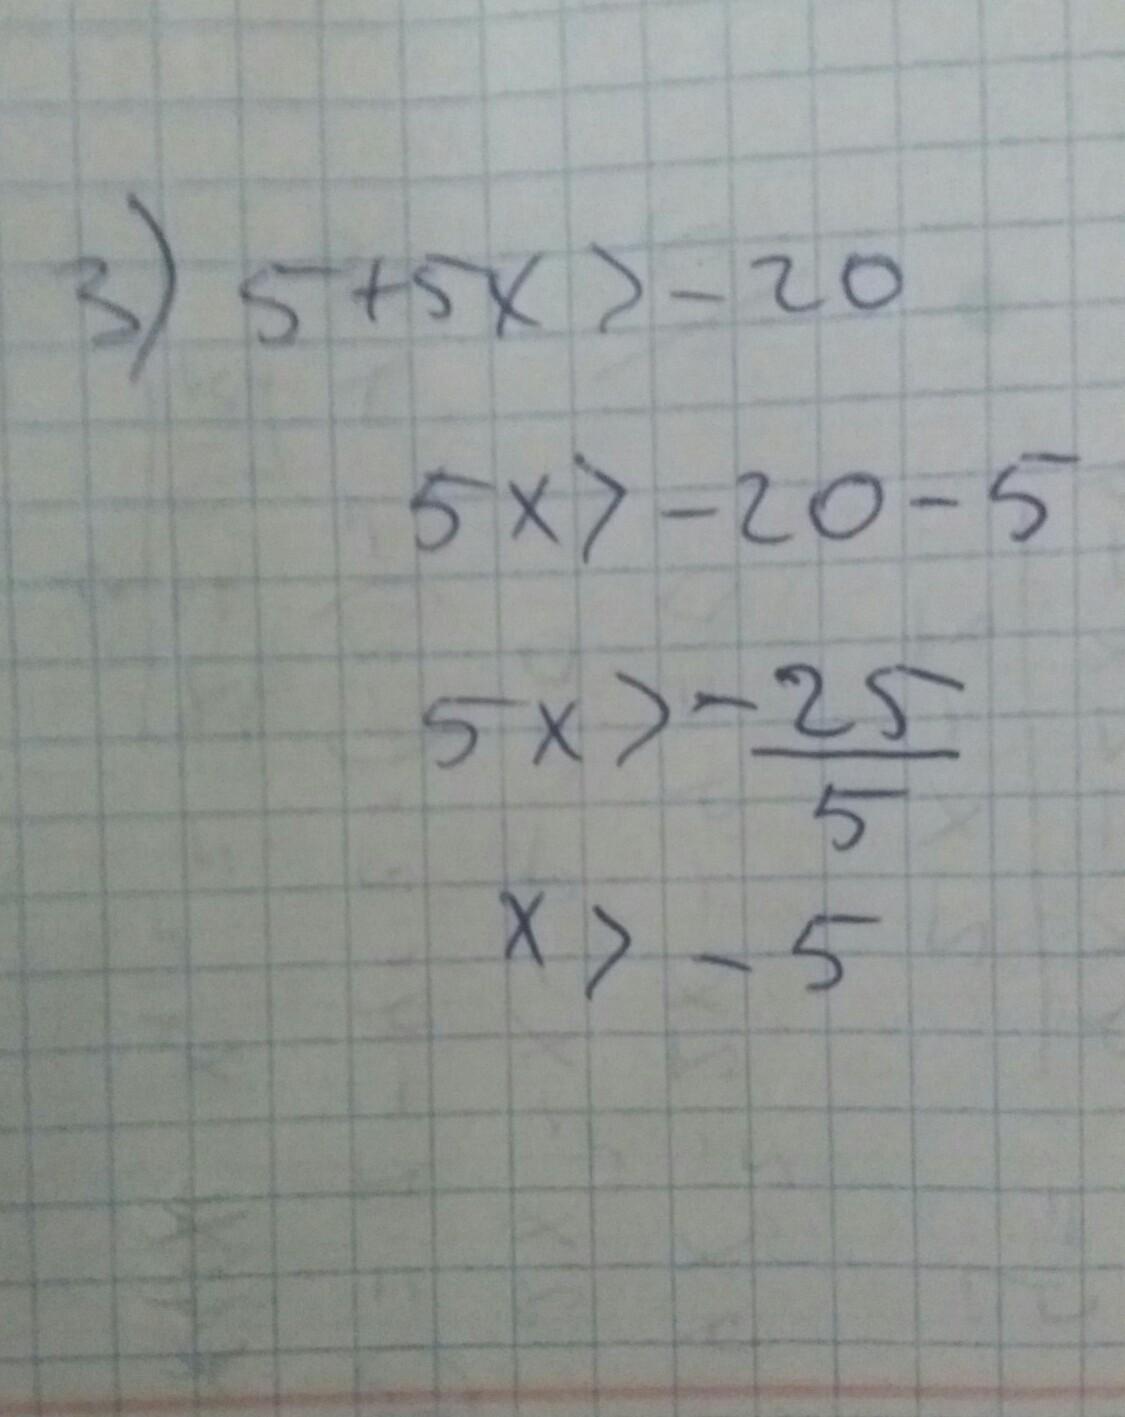 3) 5+5x>-20
5x>-20-5
5x>-25/5
x>-5